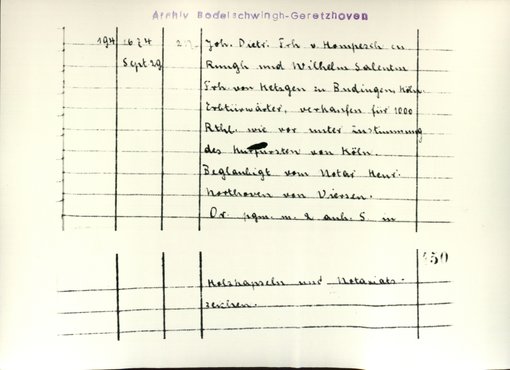 Archiv Bodelschwingh-Geretzhoven
194 1674 Joh. Dietr. Frh v. Hompesch zu
Sept 29 Rurigh und Wilhelm Salentin
Frh von Hetzgen zu Büdingen, Köln.
Erbtürwärter, verkaufen für 1000
Rthl. wie vor unter Zustimmung
des Kurfürsten von Köln.
Beglaubigt vom Notar Henr.
Northoven von Viersen.
Or. pgm. m. 2 anh. S. in
150
Holzkapseln und Notariats-
zeichen.